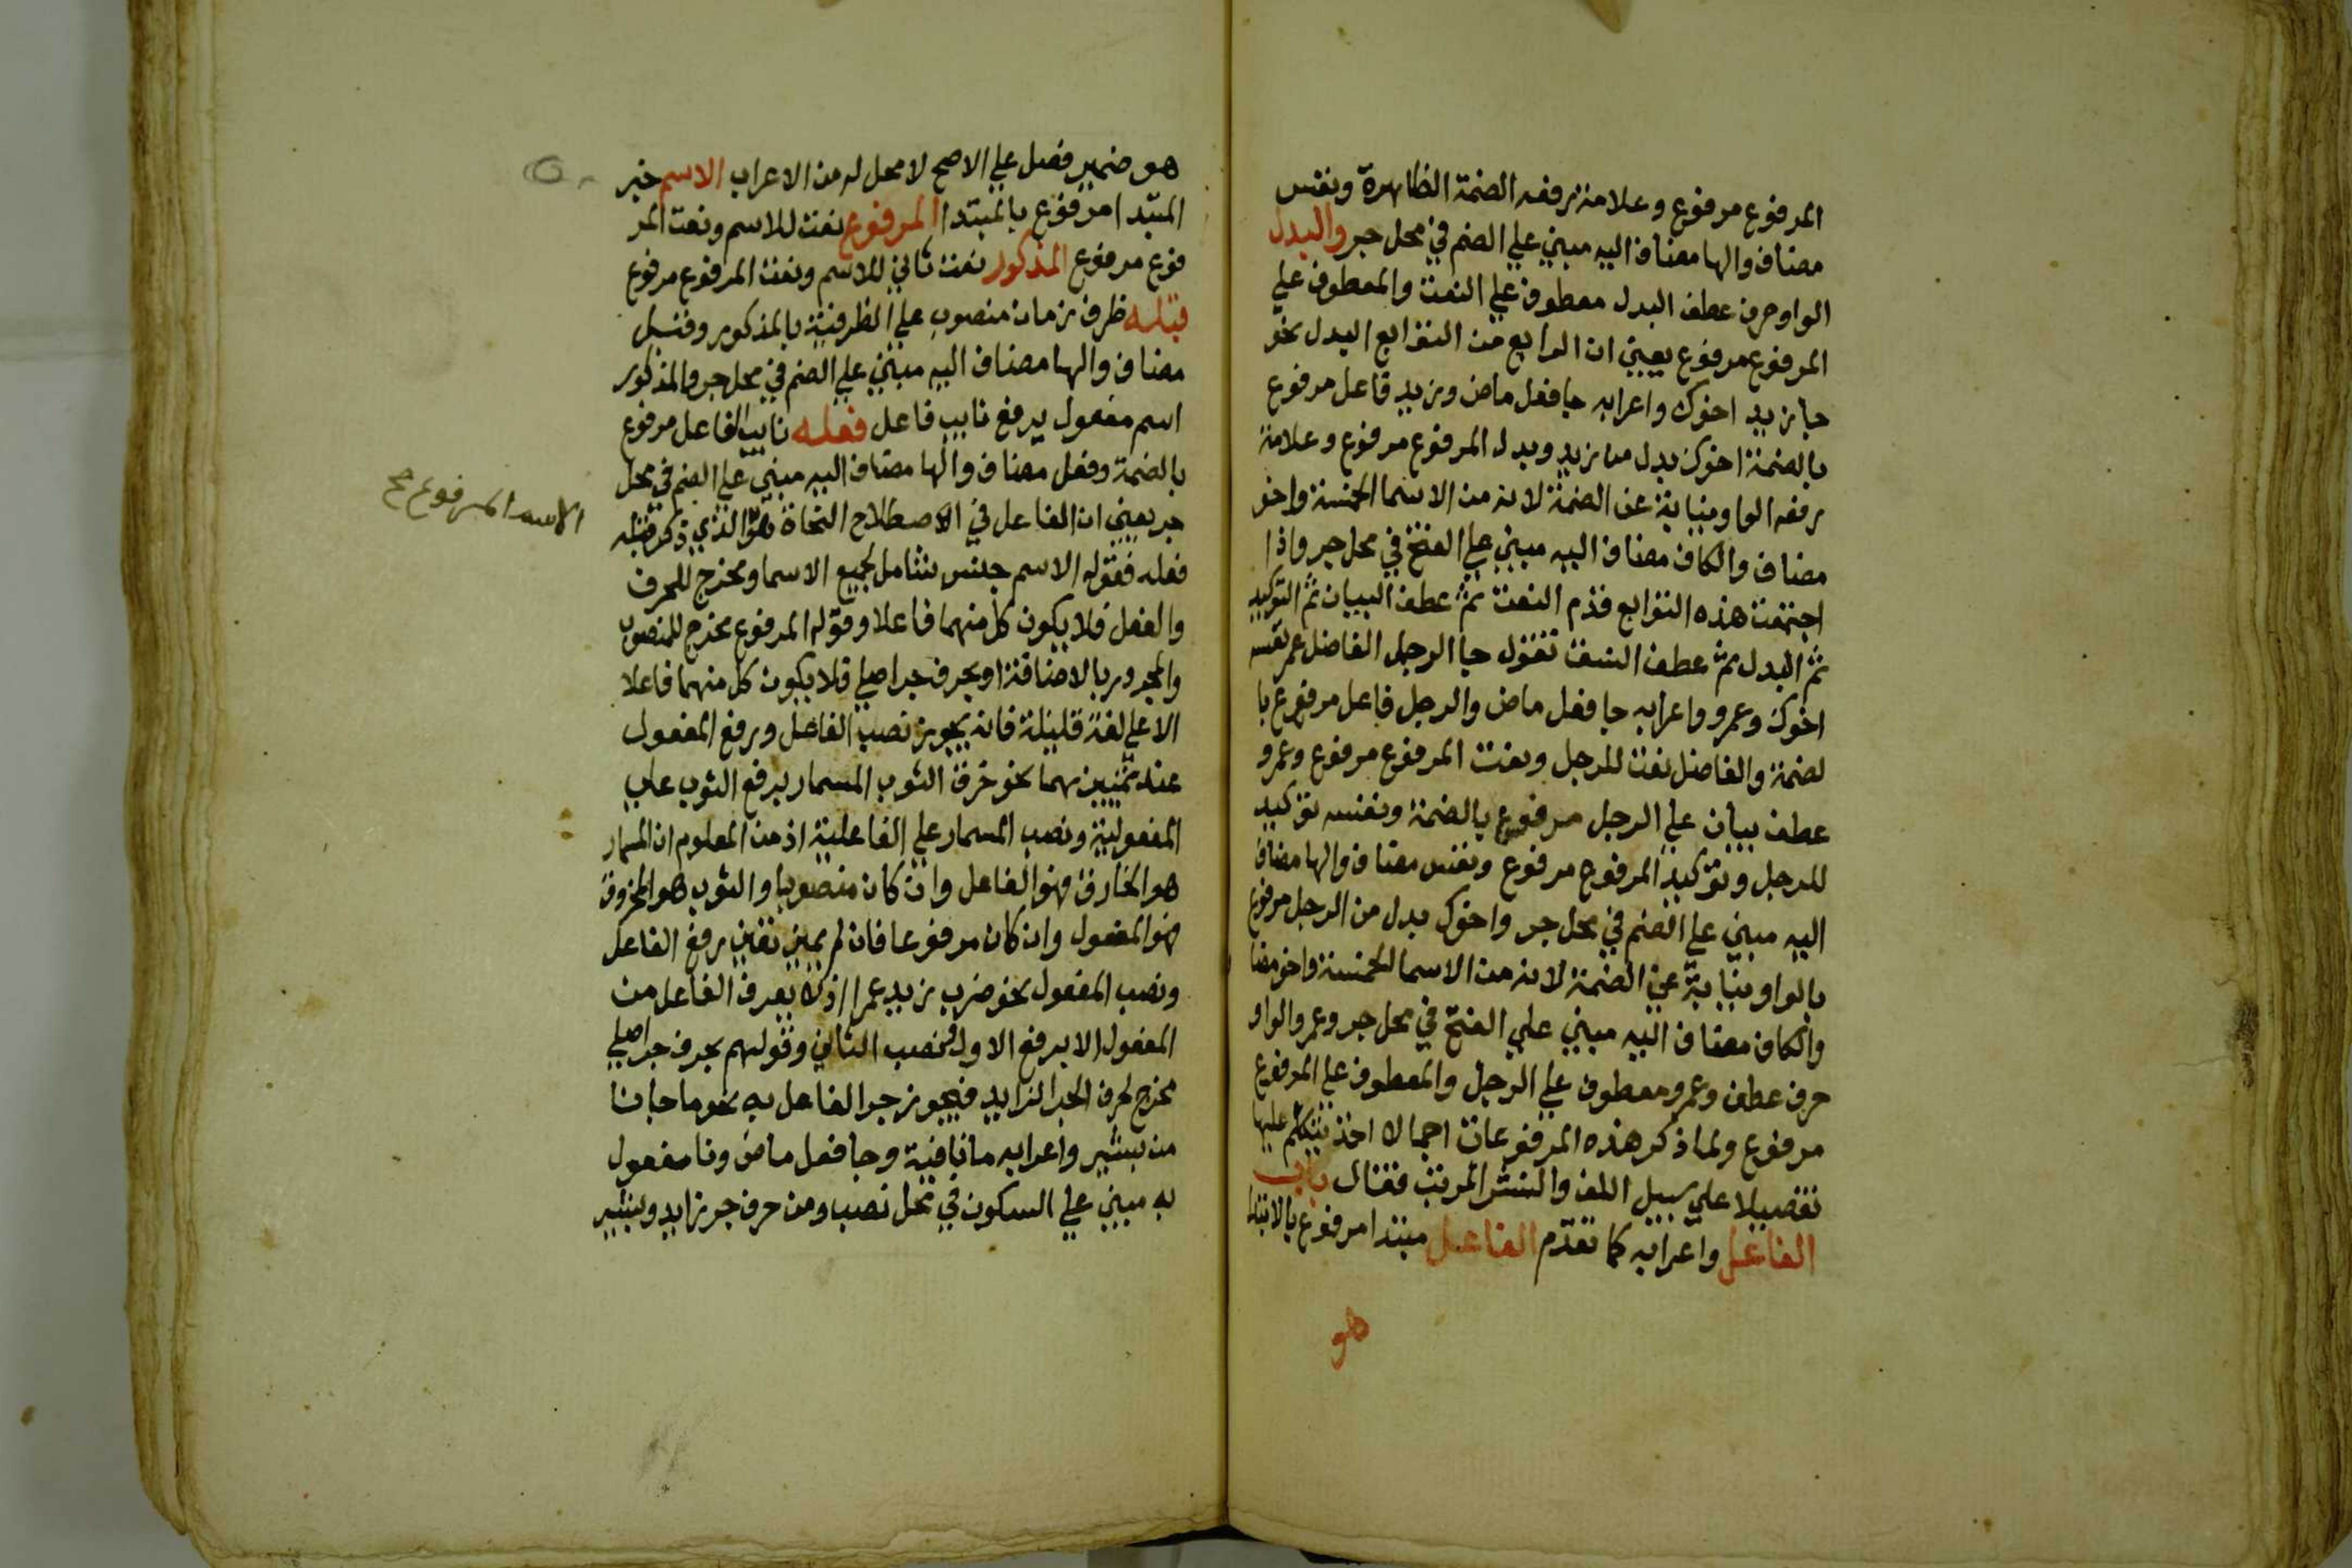 المرفوع مرفوع وعلامة رفعه الضمة الظاهرة ونفس
مضاف والها مضاف اليه مبني علي الضم في محل جر والبدل
الواو حرف عطف البدل معطوف علي النعت والمعطوف علي
المرفوع مرفوع يعني ان الرابع من التوابع البدل نحو
جا زيد اخوك واعرابه جا فعل ماض وزيد فاعل مرفوع
بالضمة اخوك بدل من زيد وبدل المرفوع مرفوع وعلامة
رفعه الواو نيابة عن الضمة لانه من الاسما الخمسة واخو
مضاف والكاف مضاف اليه مبني علي الفتح في محل جر واذا
اجتمعت هذه التوابع قدم النعت ثم عطف البيان ثم التوكيد
ثم البدل ثم عطف النسق تقول جا الرجل الفاضل عمر نفسه
اخوك وعمرو واعرابه جا فعل ماض والرجل فاعل مرفوع با
لضمة والفاضل نعت للرجل ونعت المرفوع مرفوع وعمرو
عطف بيان علي الرجل مرفوع بالضمة ونفسه توكيد
للرجل وتوكيد المرفوع مرفوع ونفس مضاف والها مضاف
اليه مبني علي الضم في محل جر واخوك بدل من الرجل مرفوع
بالواو نيابة عن الضمة لانه من الاسما الخمسة واخو مضا
والكاف مضاف اليه مبني علي الفتح في محل جر وعمرو الواو
حرف عطف وعمرو معطوف علي الرجل والمعطوف علي المرفوع
مرفوع ولما ذكر هذه المرفوعات اجمالا اخذ يتكلم عليها
تفصيلا علي سبيل اللف والنشر المرتب فقال باب
الفاعل واعرابه كما تقدم الفاعل مبتدا مرفوع بالابتدا
هو
هو ضمير فصل علي الاصح لا محل له من الاعراب الاسم خبر
المبتدا مرفوع بالمبتدا المرفوع نعت للاسم ونعت المر
فوع مرفوع المذكور نعت ثاني للاسم ونعت المرفوع مرفوع
قبله ظرف زمان منصوب علي الظرفية بالمذكور وقبل
مضاف والها مضاف اليه مبني علي الضم في محل جر والمذكور
اسم مفعول يرفع نايب فاعل فعله نايب الفاعل مرفوع
بالضمة وفعل مضاف والها مضاف اليه مبني علي الضم في محل
جر يعني ان الفاعل في الاصطلاح النحاة هو الذي ذكر قبله
الاسم المرفوع صح
فعله فقوله الاسم جنس شامل لجميع الاسما ومخرج للحرف
والفعل فلا يكون كل منهما فاعلا وقوله المرفوع مخرج للمنصوب
والمجرور بالاضافة او بحرف جر اصلي فلا يكون كل منهما فاعلا
الا علي لغة قليلة فانه يجوز نصب الفاعل ورفع المفعول
عند تمييزهما نحو خرق الثوب المسمار برفع الثوب علي
المفعولية ونصب المسمار علي الفاعلية اذ من المعلوم ان المسمار
هو الخارق فهو الفاعل وان كان منصوبا والثوب هو المخروق
فهو المفعول وان كان مرفوعا فان لم يميز تعين رفع الفاعل
ونصب المفعول نحو ضرب زيد عمرا اذ لا يعرف الفاعل من
المفعول الا برفع الاول ونصب الثاني وقولهم بحرف جر اصلي
مخرج لحرف الجر الزايد فيجوز جر الفاعل به نحو ما جانا
من بشير واعرابه ما نافية وجا فعل ماض ونا مفعول
به مبني علي السكون في محل نصب ومن حرف جر زايد وبشير